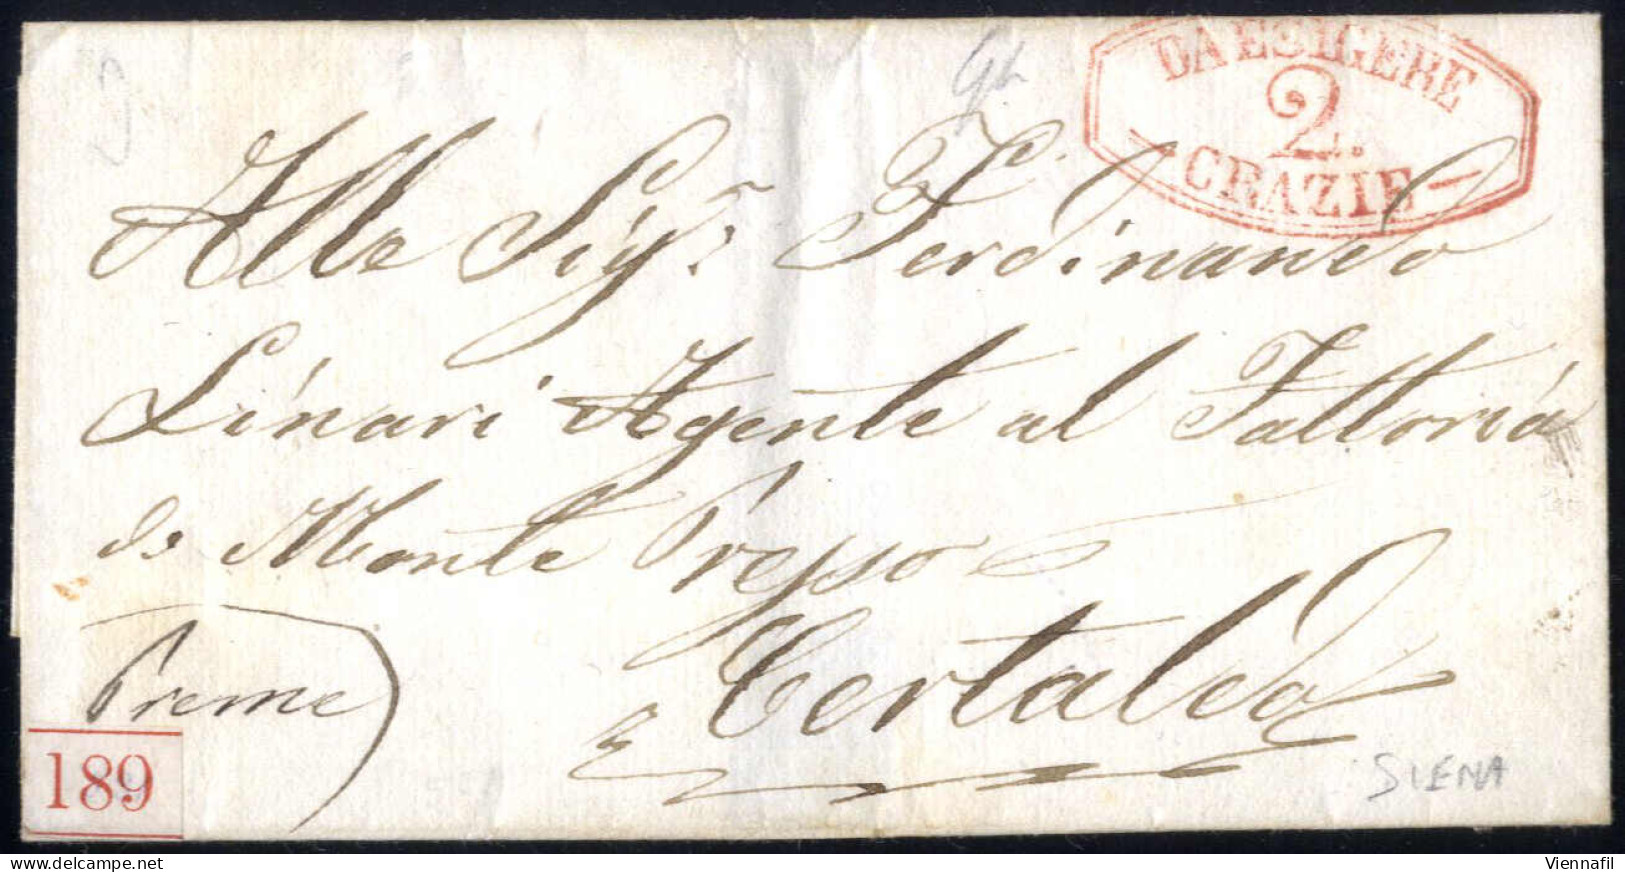 DA ESIGERE
2.
CRAZIE
Alle Sigr. Ferdinando
Linari Agente al Fattoria
di Monte Presso
Certaldo
Preme
189
SIENA
delcampe.net
Viennafil